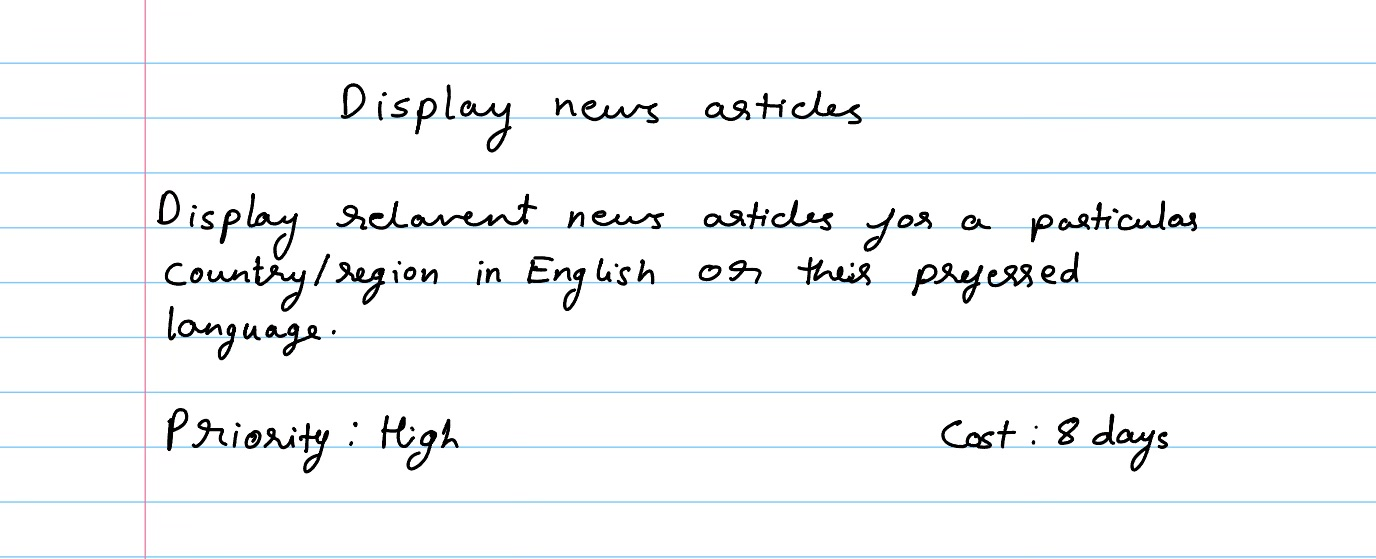 Display news articles
Display relavent news articles for a particular
country/region in English or their preferred
language.
Priority: High Cost: 8 days